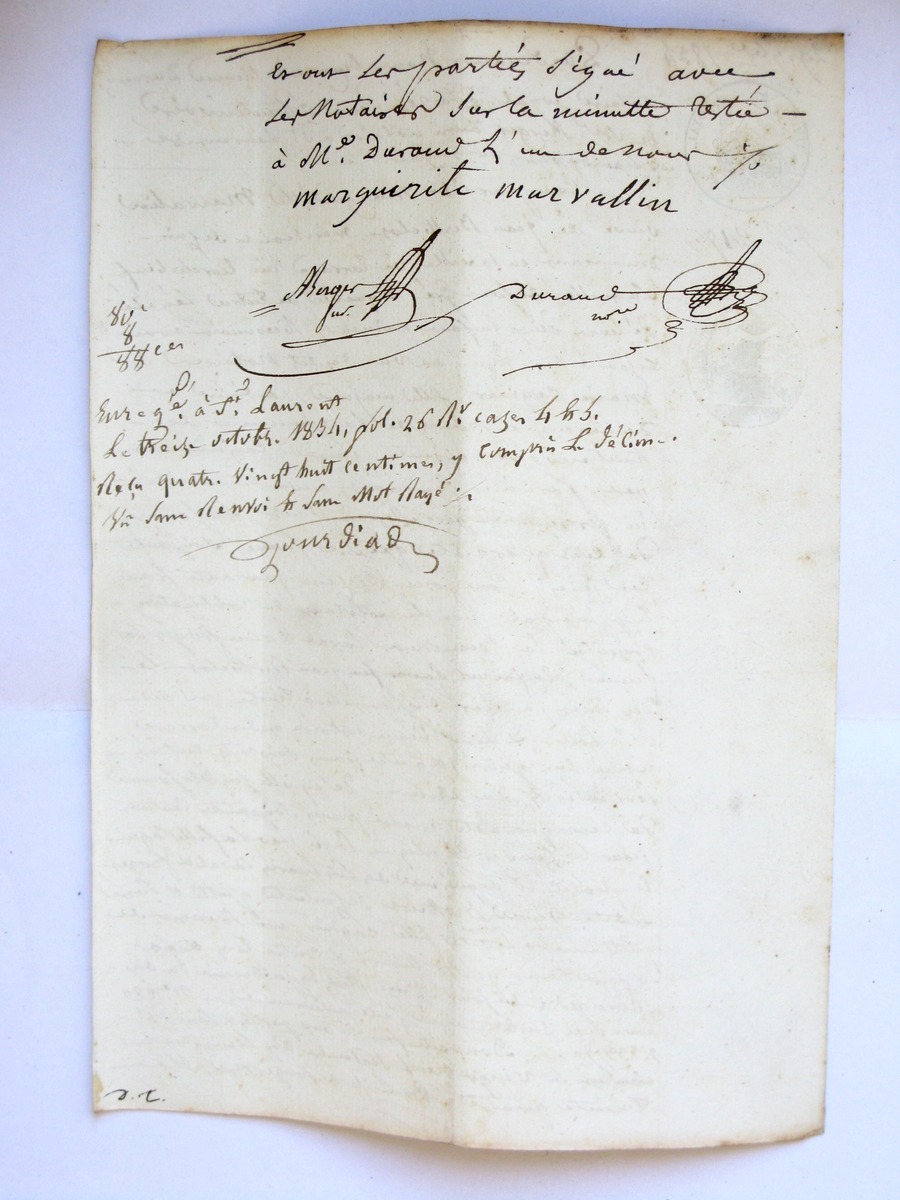 et ont les partiés signé avec
les Notaires sur la minutte restée —
à Me. Durand l'un de nous
marguerite marvallin
ABerger Durand
nore
80c
8
88ces
Enregé. à St. Laurent
Le treize octobr. 1834, fol. 26 Ro. cases 4 & 5.
Reçu quatr. vingt huit centimes, y compris Le décime.
Vu Sans Renvoi & Sans Mot Rayé
Gourdiad
D. C.